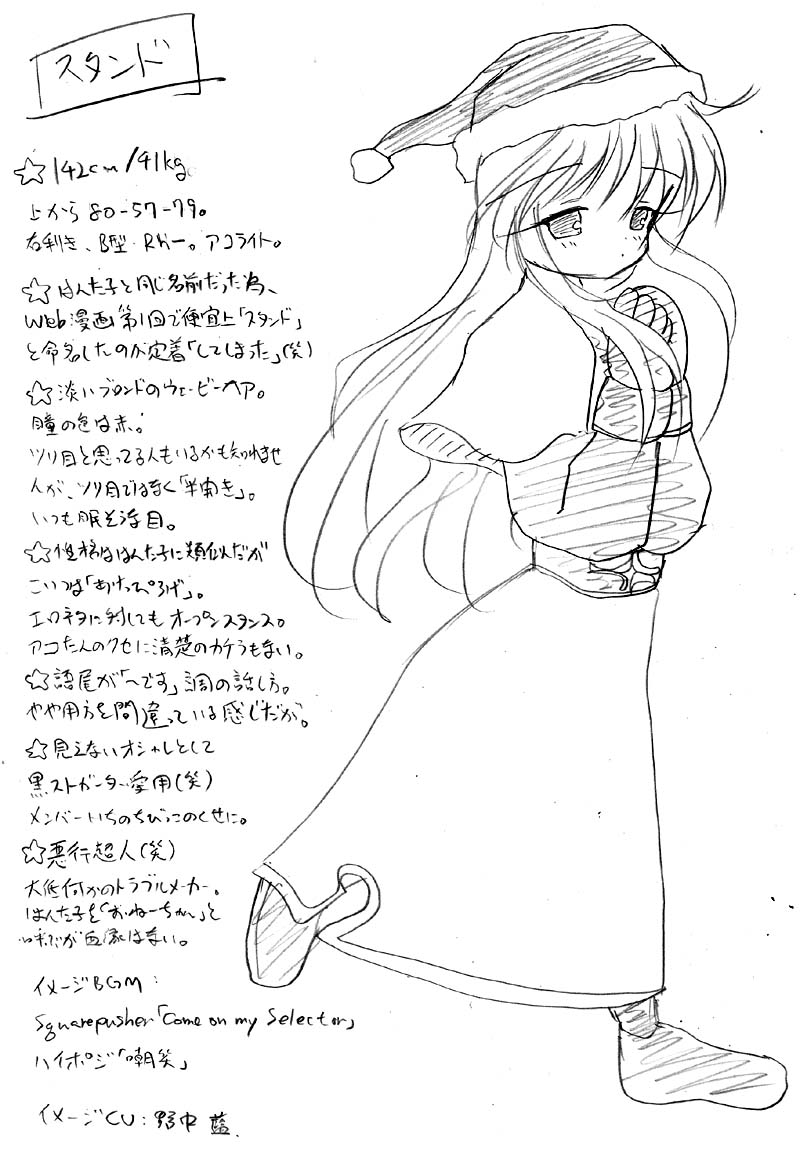 スタンド
☆142cm/41kg
上から80-57-79。
右利き、B型・RH－。アコライト。
☆はんた子と同じ名前だった為、
Web漫画第1回で便宜上「スタンド」
と命名したのが定着「してしまった」(笑)
☆淡いブロンドのウェービーヘア。
瞳の色は赤。
ツリ目と思ってる人もいるかも知れませ
んが、ツリ目ではなく「半開き」。
いつも眠そな目。
☆性格ははんた子に類似だが
こいつは「あけっぴろげ」。
エロネタに対してもオープンスタンス。
アコたんのクセに清楚のカケラもない。
☆語尾が「～です」調の話し方。
やや用方を間違っている感じだが。
☆見えないオシャレとして
黒ストガーター愛用(笑)
メンバーいちのちびっこのくせに。
☆悪行超人(笑)
大低何かのトラブルメーカー。
はんた子を「おねーちゃん」と
呼ぶが血縁はない。
イメージBGM:
Squarepusher「Come on my Selector」
ハイポジ「嘲笑」
イメージCV:野中 藍